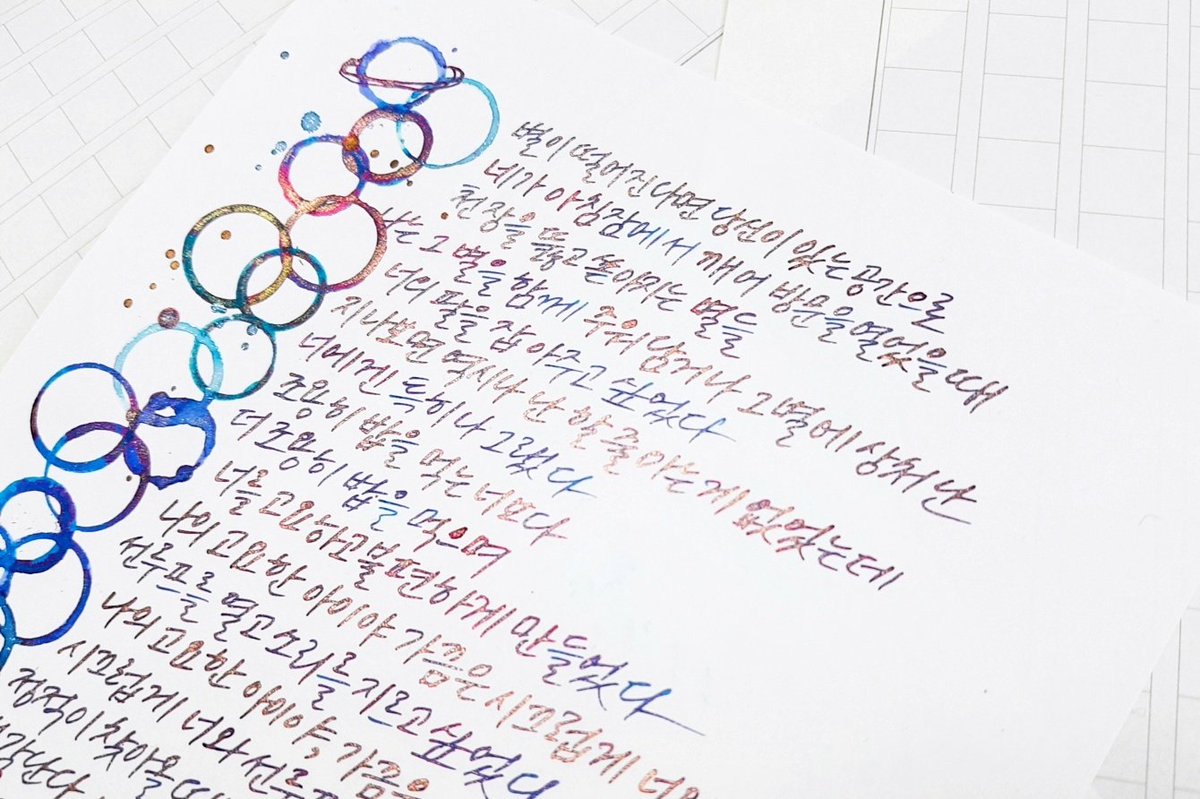 별이 떨어진다면 당신이 있는 공간으로
네가 아침잠에서 깨어 방문을 열었을 때
천장을 뚫고 쏟아지는 별들
나는 그 별을 함께 주워 담거나 그 별에 상처 난
너의 팔을 잡아주고 싶었다
지나보면 역시나 난 할 줄 아는 게 없었는데
너에겐 특히나 그랬다
조용히 밥을 먹는 너보다
더 조용히 밥을 먹으며
너를 고요하고 불편하게 만들었다
나의 고요한 아이야 가끔은 시끄럽게 너
선루프를 열고 소리를 지르고 싶었다
나의 고요한 아이야, 가끔은
시끄럽게 너와 선루
정적이 찾아올 때